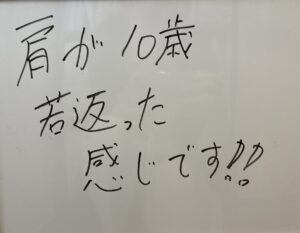 肩が10歳
若返った
感じです!!